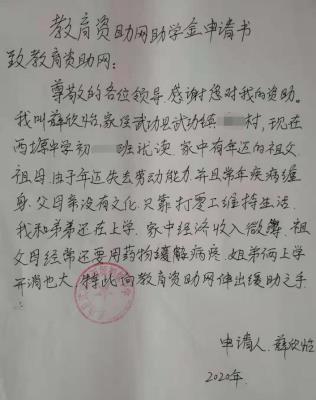 教育资助网助学金申请书
致教育资助网：
尊敬的各位领导，感谢您对我的资助。
我叫薛欣怡，家住武功县武功镇 村，现在
西塬中学初 班就读。家中有年迈的祖父
祖母，由于年迈失去劳动能力并且常年疾病缠
身，父母亲没有文化，只靠打零工维持生活
我和弟弟还在上学，家中经济收入微薄，祖
父母经常还要用药物缓解病疼，姐弟俩上学
开消也大，特此向教育资助网伸出缓助之手
申请人：薛欣怡
2020年.